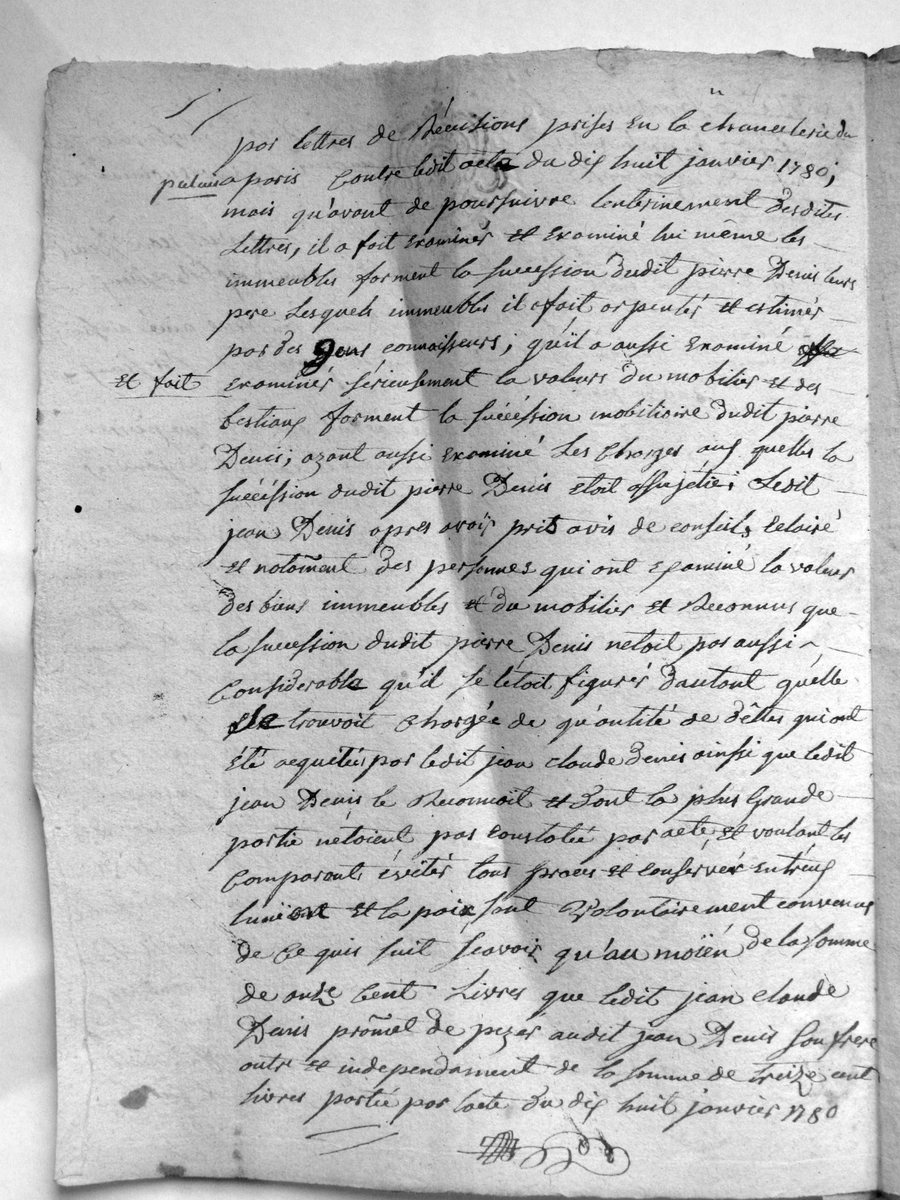 par lettres de Récisions prises en la chancelerie du
palais a paris contre ledit acte du dix huit janvier 1780;
mais qu'avant de poursuivre lenterinement desdites
Lettres, il a fait examinér et examiné lui même les
immeubles forment la succession dudit pierre Denis leurs
pere Lesquels immeubles il a fait arpentér et estimér
par des gens connaisseurs; qu'il a aussi examiné
et fait examinér sérieusement la valeur du mobilier et des
bestiaux forment la succéssion mobiliaire dudit pierre
Denis; ayant aussi examiné Les Charges aux quelles la
succéssion dudit pierre Denis etoit assujétie; Ledit
jean Denis apres avoir pris avis de conseils eclairé
et notam̃ent des personnes qui ont examiné la valeur
des biens immeubles et du mobilier et Reconnus que
la succession dudit pierre Denis netoit pas aussi
Considerable qu'il se l'étoit figurér dautant quelle
se trouvoit chargée de qu'antité de dêttes qui ont
été acquitées par ledit jean claude Denis ainsi que ledit
jean Denis le Reconnoit et dont la plus Grande
partie nétoient pas constatée par acte, et voulant les
Comparants évitér tous proces et conservér entr'eux
lunion et la paix, sont Volontairement convenus
de Ce qui suit scavoir qu'au moïén de la somme
de onze Cent Livres que ledit jean claude
Denis prom̃et de payér audit jean Denis son frere
outre et independament de la somme de treize cent
livres portée par lacte du dix huit janvier 1780